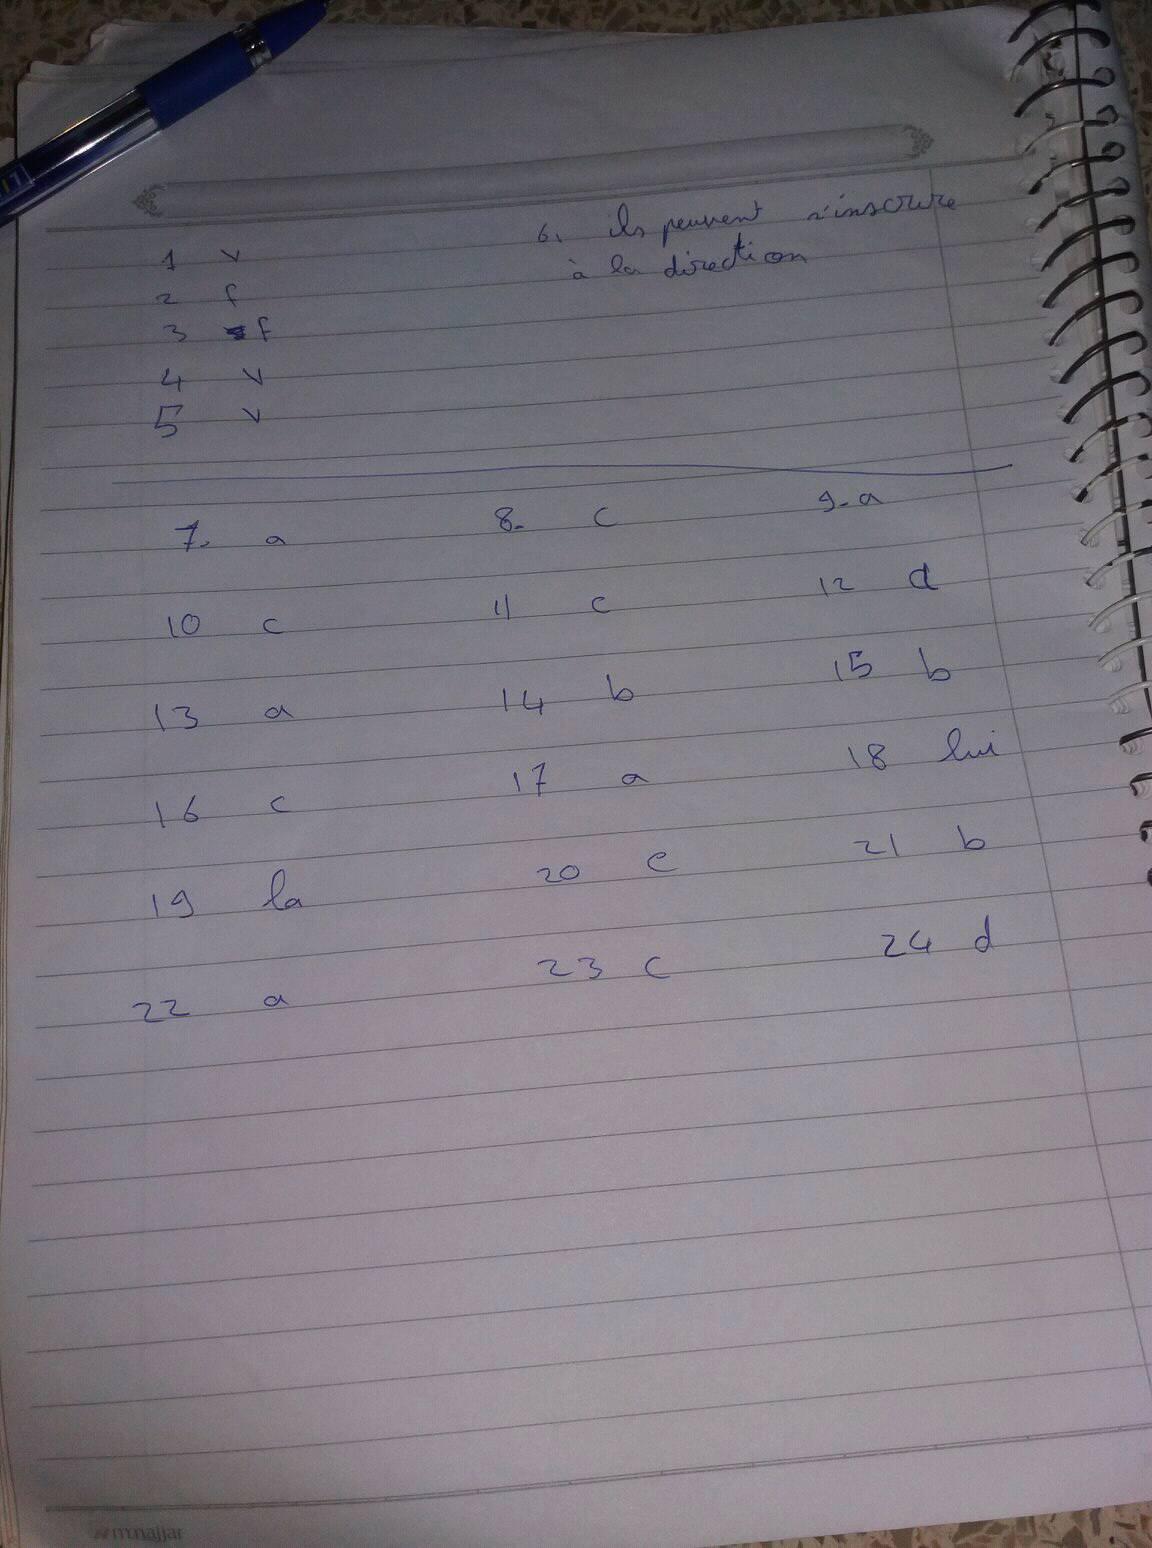 1 v
6. ils peuvent s'inscrire
à la direction
2 f
3 f
4 v
5 v
7. a 8. c 9. a
10 c 11 c 12 d
13 a 14 b 15 b
16 c 17 a 18 lui
19 la 20 c 21 b
22 a 23 c 24 d
m.najjar